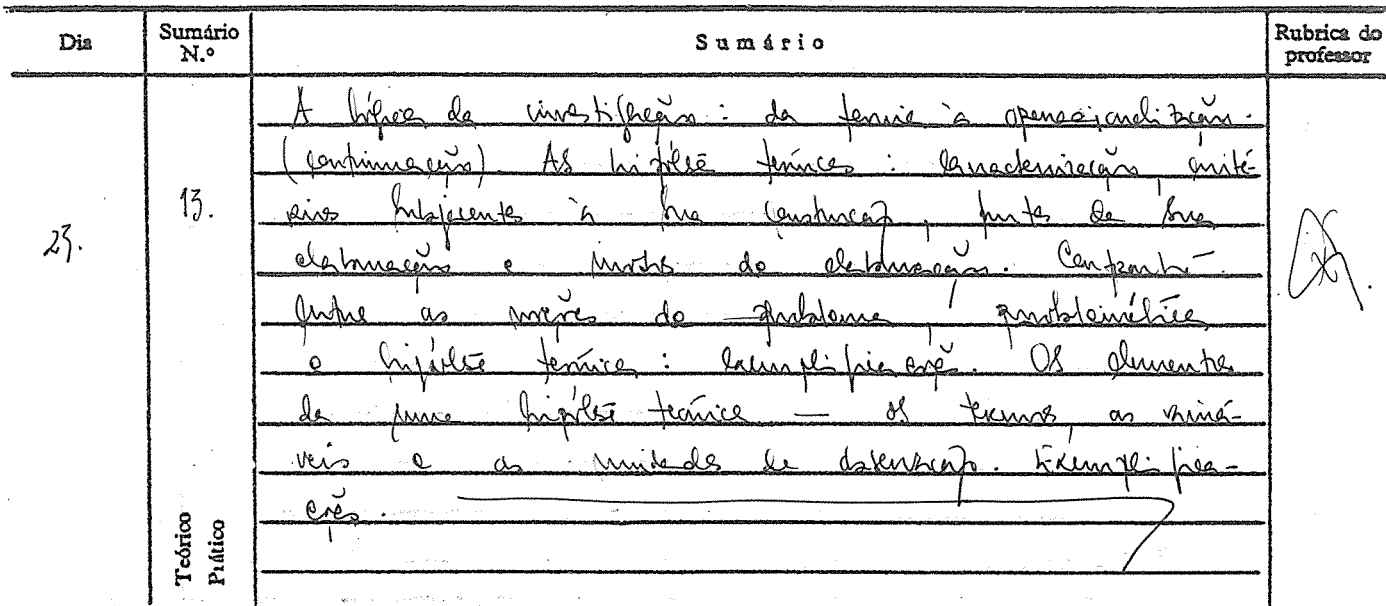 Dia
Sumário N.º
Sumário
Rubrica do professor
A lógica da investigação: da teoria à operacionalização.
(continuação). As hipóteses teóricas: caracterização, crité-
13.
rios subjacentes à sua construção, fontes da sua
23.
elaboração e modos de elaboração. Confronto
entre as noções de problema, problemática
e hipótese teórica: exemplificação. Os elementos
de uma hipótese teórica — os termos, as variá-
veis e as unidades de observação. Exemplifica-
ções.
Teórico
Prático